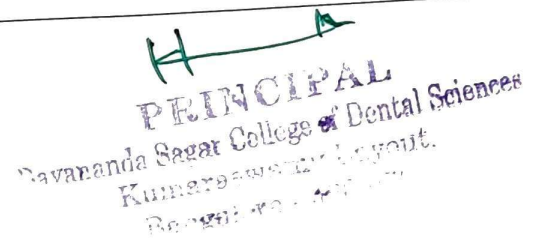 PRINCIPAL
Dayananda Sagar College of Dental Sciences
Kumaraswamy Layout,